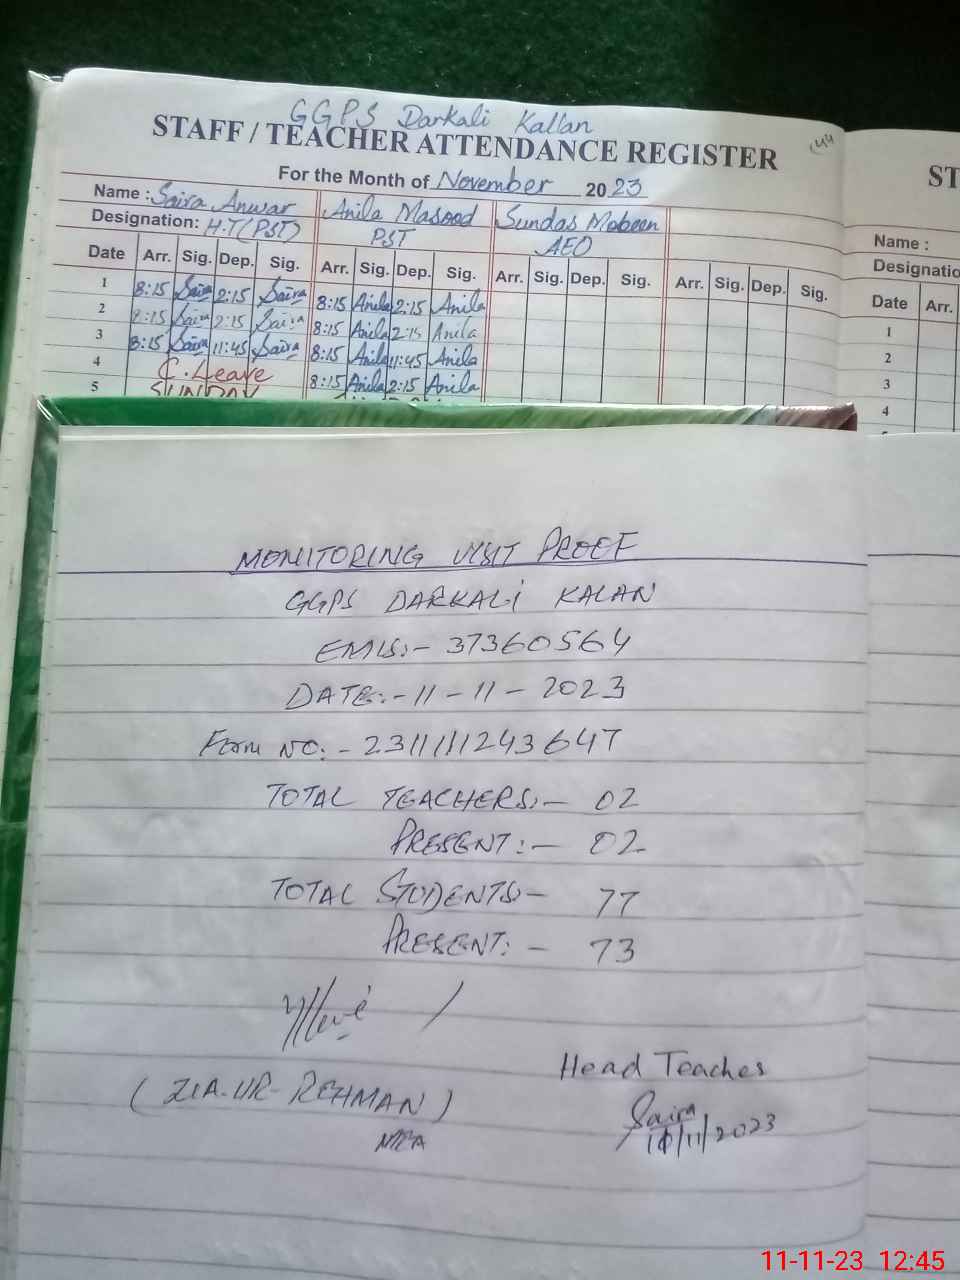 GGPS Darkali Kallan
STAFF / TEACHER ATTENDANCE REGISTER
44
For the Month of November 2023
Name : Saira Anwar Anila Masood Sundas Mobeen
Designation: H.T (PST) PST AEO
Date Arr. Sig. Dep. Sig. Arr. Sig. Dep. Sig. Arr. Sig. Dep. Sig. Arr. Sig. Dep. Sig.
1 8:15 Saira 2:15 Saira 8:15 Anila 2:15 Anila
2 8:15 Saira 2:15 Saira 8:15 Anila 2:15 Anila
3 8:15 Saira 11:45 Saira 8:15 Anila 11:45 Anila
4 C. Leave 8:15 Anila 2:15 Anila
5 SUNDAY
ST
Name :
Designatio
Date Arr.
1
2
3
4
MONITORING VISIT PROOF
GGPS DARKALI KALAN
EMIS:- 37360564
DATE:- 11-11-2023
Form NO:- 2311111243647
TOTAL TEACHERS:- 02
PRESENT:- 02
TOTAL STUDENTS- 77
PRESENT:- 73
Head Teacher
(ZIA-UR-REHMAN)
MEA
Saira
11/11/2023
11-11-23 12:45